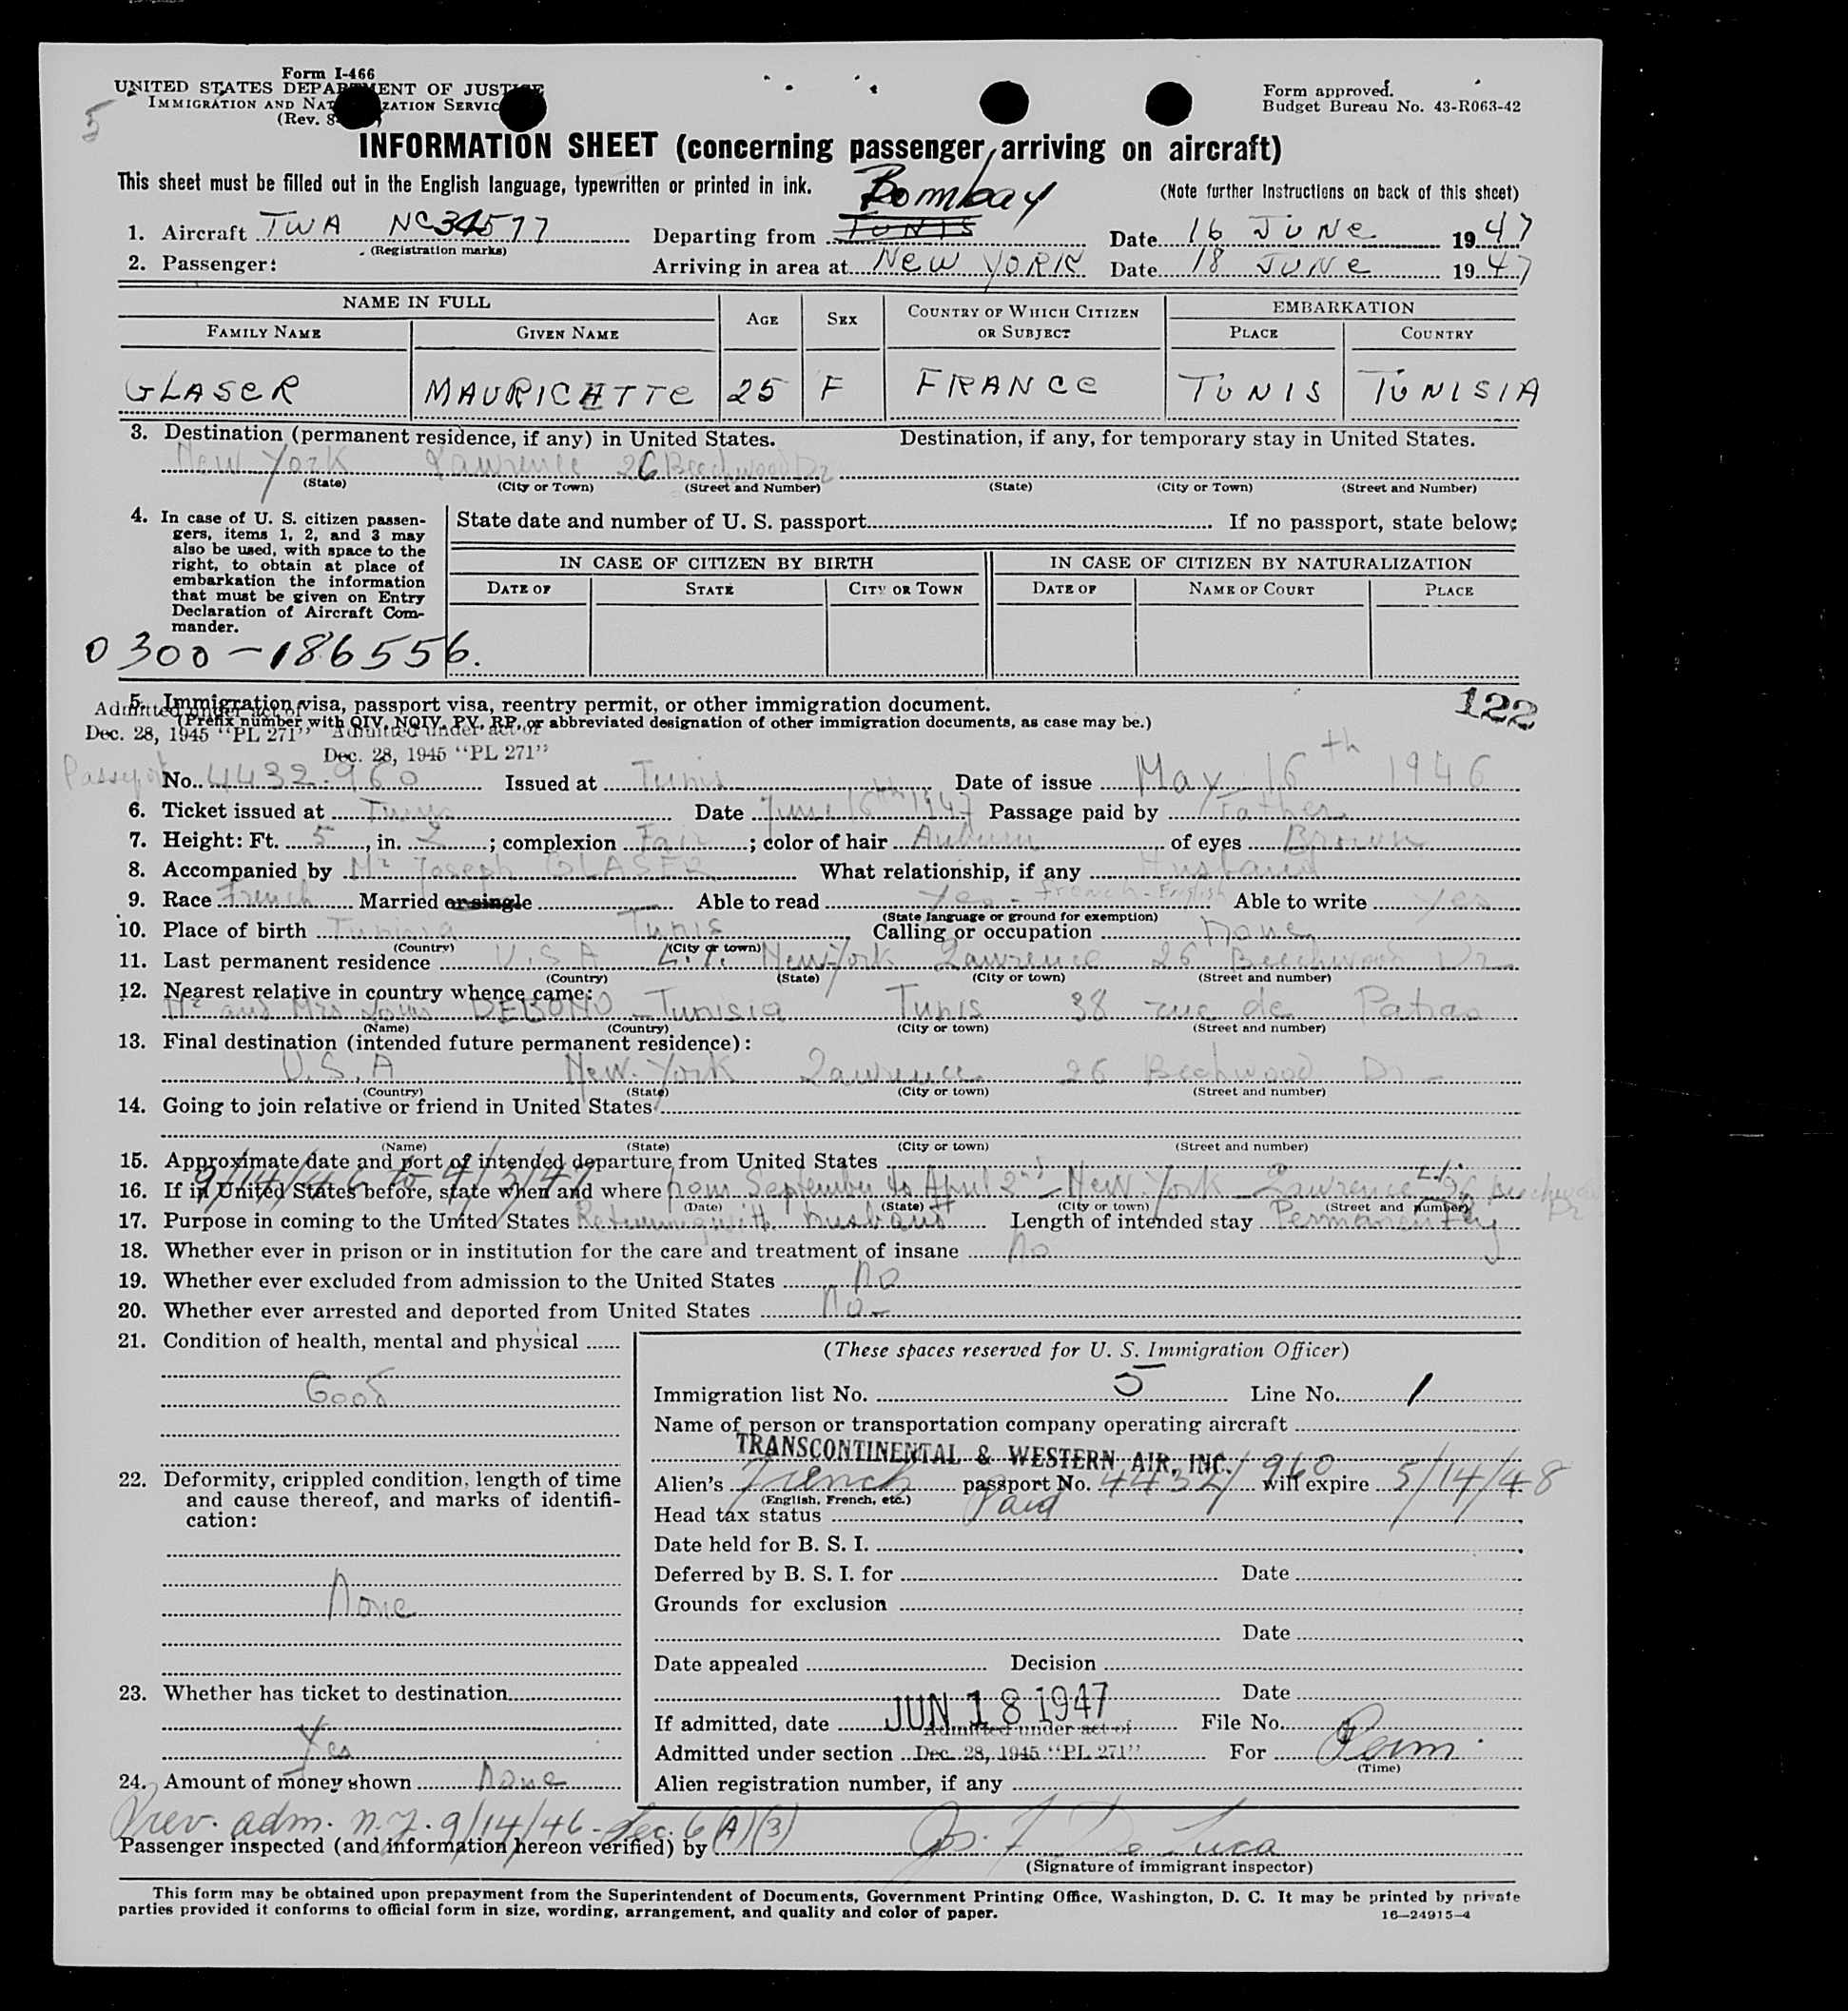 Form I-466
UNITED STATES DEPARTMENT OF JUSTICE
IMMIGRATION AND NATURALIZATION SERVICE
(Rev. 8
Form approved.
Budget Bureau No. 43-R063-42
5
INFORMATION SHEET (concerning passenger arriving on aircraft)
This sheet must be filled out in the English language, typewritten or printed in ink.
(Note further Instructions on back of this sheet)
Bombay
1. Aircraft TWA NC34577 Departing from TUNIS Date 16 JUNE 1947
(Registration marks)
2. Passenger: Arriving in area at NEW YORK Date 18 JUNE 1947
NAME IN FULL AGE SEX COUNTRY OF WHICH CITIZEN OR SUBJECT EMBARKATION
FAMILY NAME GIVEN NAME PLACE COUNTRY
GLASER MAURICETTE 25 F FRANCE TUNIS TUNISIA
3. Destination (permanent residence, if any) in United States. Destination, if any, for temporary stay in United States.
New York Lawrence 26 Beechwood Dr
(State) (City or Town) (Street and Number) (State) (City or Town) (Street and Number)
4. In case of U. S. citizen passen-
gers, items 1, 2, and 3 may
also be used, with space to the
right, to obtain at place of
embarkation the information
that must be given on Entry
Declaration of Aircraft Com-
mander.
State date and number of U. S. passport If no passport, state below:
IN CASE OF CITIZEN BY BIRTH IN CASE OF CITIZEN BY NATURALIZATION
DATE OF STATE CITY OR TOWN DATE OF NAME OF COURT PLACE
0300-186556.
5. Immigration visa, passport visa, reentry permit, or other immigration document.
122
(Prefix number with QIV, NQIV, PV, RP, or abbreviated designation of other immigration documents, as case may be.)
Admitted under act of
Dec. 28, 1945 "PL 271"
Admitted under act of
Dec. 28, 1945 "PL 271"
Passeport No. 4432.960 Issued at Tunis Date of issue May 16th 1946
6. Ticket issued at Tunis Date June 16th 1947 Passage paid by Father
7. Height: Ft. 5, in. 2; complexion Fair; color of hair Auburn of eyes Brown
8. Accompanied by Mr Joseph GLASER What relationship, if any Husband
9. Race French Married or single Able to read Yes - French - English Able to write Yes
(State language or ground for exemption)
10. Place of birth Tunisia Tunis Calling or occupation None
(Country) (City or town)
11. Last permanent residence U.S.A L.I. New York Lawrence 26 Beechwood Dr
(Country) (State) (City or town) (Street and number)
12. Nearest relative in country whence came:
Mr and Mrs Louis DEBONO - Tunisia Tunis 38 rue de Patras
(Name) (Country) (City or town) (Street and number)
13. Final destination (intended future permanent residence):
U.S.A New York Lawrence 26 Beechwood Dr -
(Country) (State) (City or town) (Street and number)
14. Going to join relative or friend in United States
(Name) (State) (City or town) (Street and number)
15. Approximate date and port of intended departure from United States
9/14/46 to 4/3/47
16. If in United States before, state when and where from September to April 2nd - New York - Lawrence L.I. 26 Beechwood Dr
(Date) (State) (City or town) (Street and number)
17. Purpose in coming to the United States Returning with husband Length of intended stay Permanently
18. Whether ever in prison or in institution for the care and treatment of insane No
19. Whether ever excluded from admission to the United States No
20. Whether ever arrested and deported from United States No -
21. Condition of health, mental and physical
Good
22. Deformity, crippled condition, length of time
and cause thereof, and marks of identifi-
cation:
None
23. Whether has ticket to destination
Yes
24. Amount of money shown None
(These spaces reserved for U. S. Immigration Officer)
Immigration list No. 5 Line No. 1
Name of person or transportation company operating aircraft
TRANSCONTINENTAL & WESTERN AIR, INC.
Alien's French passport No. 4432/960 will expire 5/14/48
(English, French, etc.)
Head tax status Paid
Date held for B. S. I.
Deferred by B. S. I. for Date
Grounds for exclusion
Date
Date appealed Decision
Date
If admitted, date JUN 18 1947 File No.
Admitted under act of
Admitted under section Dec. 28, 1945 "PL 271" For Perm.
(Time)
Alien registration number, if any
Prev. adm. N.Y. 9/14/46 - Sec. 6(A)(3)
Passenger inspected (and information hereon verified) by Jos. F De Luca
(Signature of immigrant inspector)
This form may be obtained upon prepayment from the Superintendent of Documents, Government Printing Office, Washington, D. C. It may be printed by private
parties provided it conforms to official form in size, wording, arrangement, and quality and color of paper.
16—24915-4